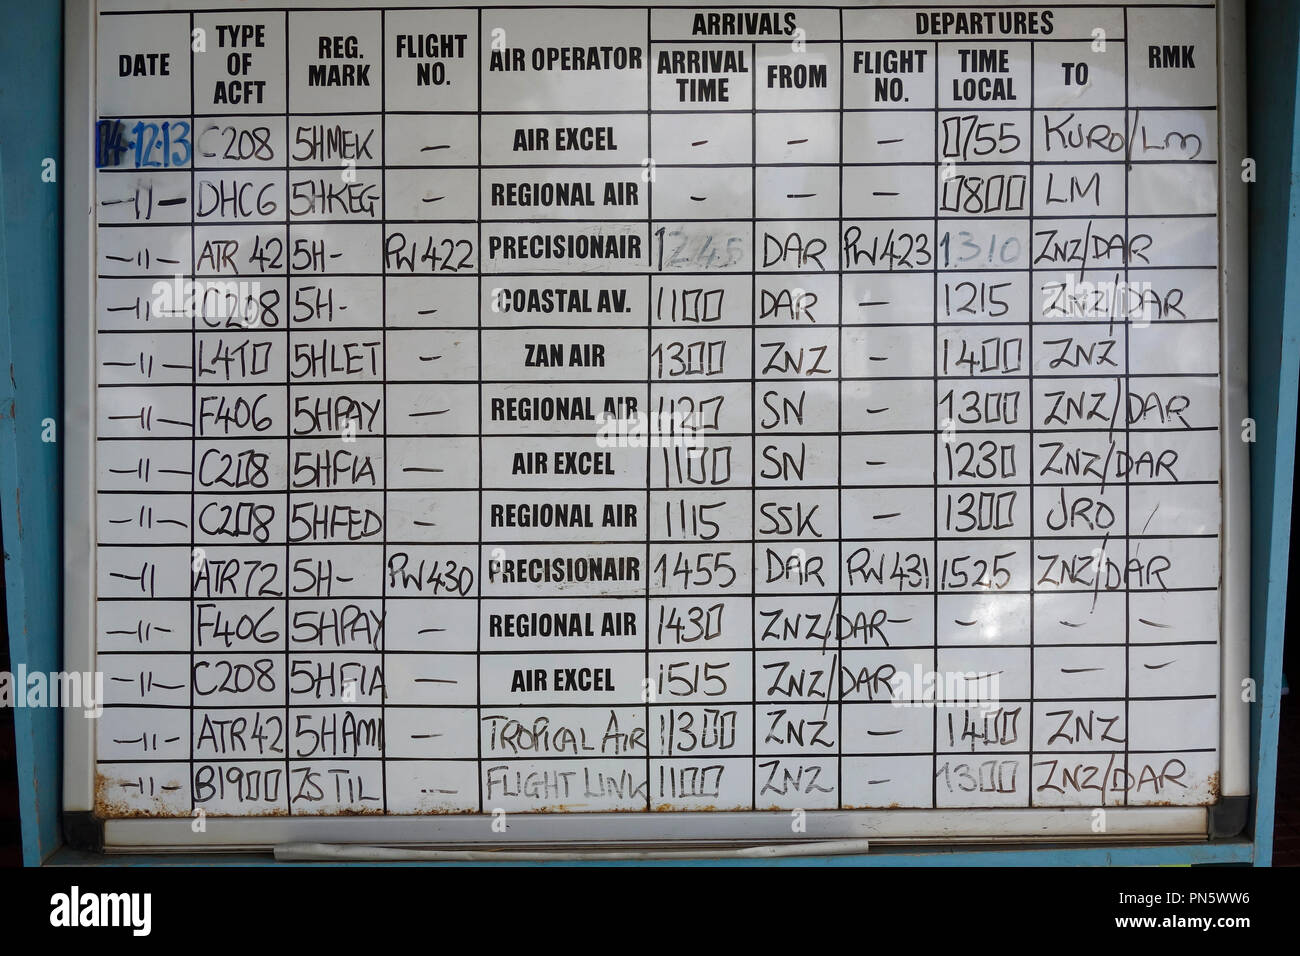 ARRIVALS DEPARTURES
DATE TYPE OF ACFT REG. MARK FLIGHT NO. AIR OPERATOR ARRIVAL TIME FROM FLIGHT NO. TIME LOCAL TO RMK
14·12·13 C208 5HMEK — AIR EXCEL - - - 0755 KURO/LM
—11— DHC6 5HKEG — REGIONAL AIR - - - 0800 LM
—11— ATR 42 5H- PW422 PRECISIONAIR 1245 DAR PW423 1310 ZNZ/DAR
—11— C208 5H- — COASTAL AV. 1100 DAR — 1215 ZNZ/DAR
—11— L410 5HLET — ZAN AIR 1300 ZNZ — 1400 ZNZ
—11— F406 5HPAY — REGIONAL AIR 1120 SN - 1300 ZNZ/DAR
—11— C208 5HFIA — AIR EXCEL 1100 SN — 1230 ZNZ/DAR
—11— C208 5HFED — REGIONAL AIR 1115 SSK — 1300 JRO /
—11 ATR72 5H- PW430 PRECISIONAIR 1455 DAR PW431 1525 ZNZ/DAR
—11— F406 5HPAY — REGIONAL AIR 1430 ZNZ/DAR - - - -
—11— C208 5HFIA — AIR EXCEL 1515 ZNZ/DAR - - -
—11— ATR42 5HAMI — TROPICAL AIR 11300 ZNZ — 1400 ZNZ
—11— B1900 ZSTIL — FLIGHT LINK 1100 ZNZ - 1300 ZNZ/DAR
alamy
Image ID: PN5WW6
www.alamy.com